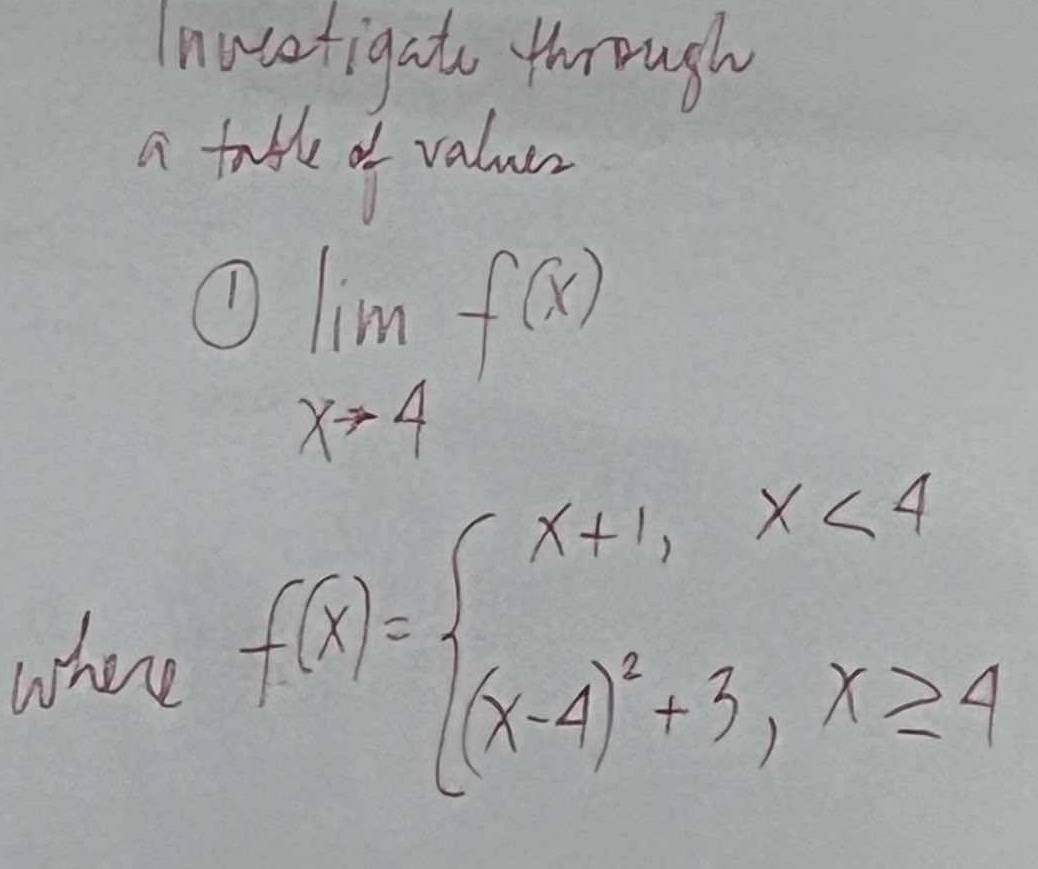 Investigate through
a table of values
① lim f(x)
x→4
where f(x) = { x+1, x < 4
(x-4)² + 3, x ≥ 4